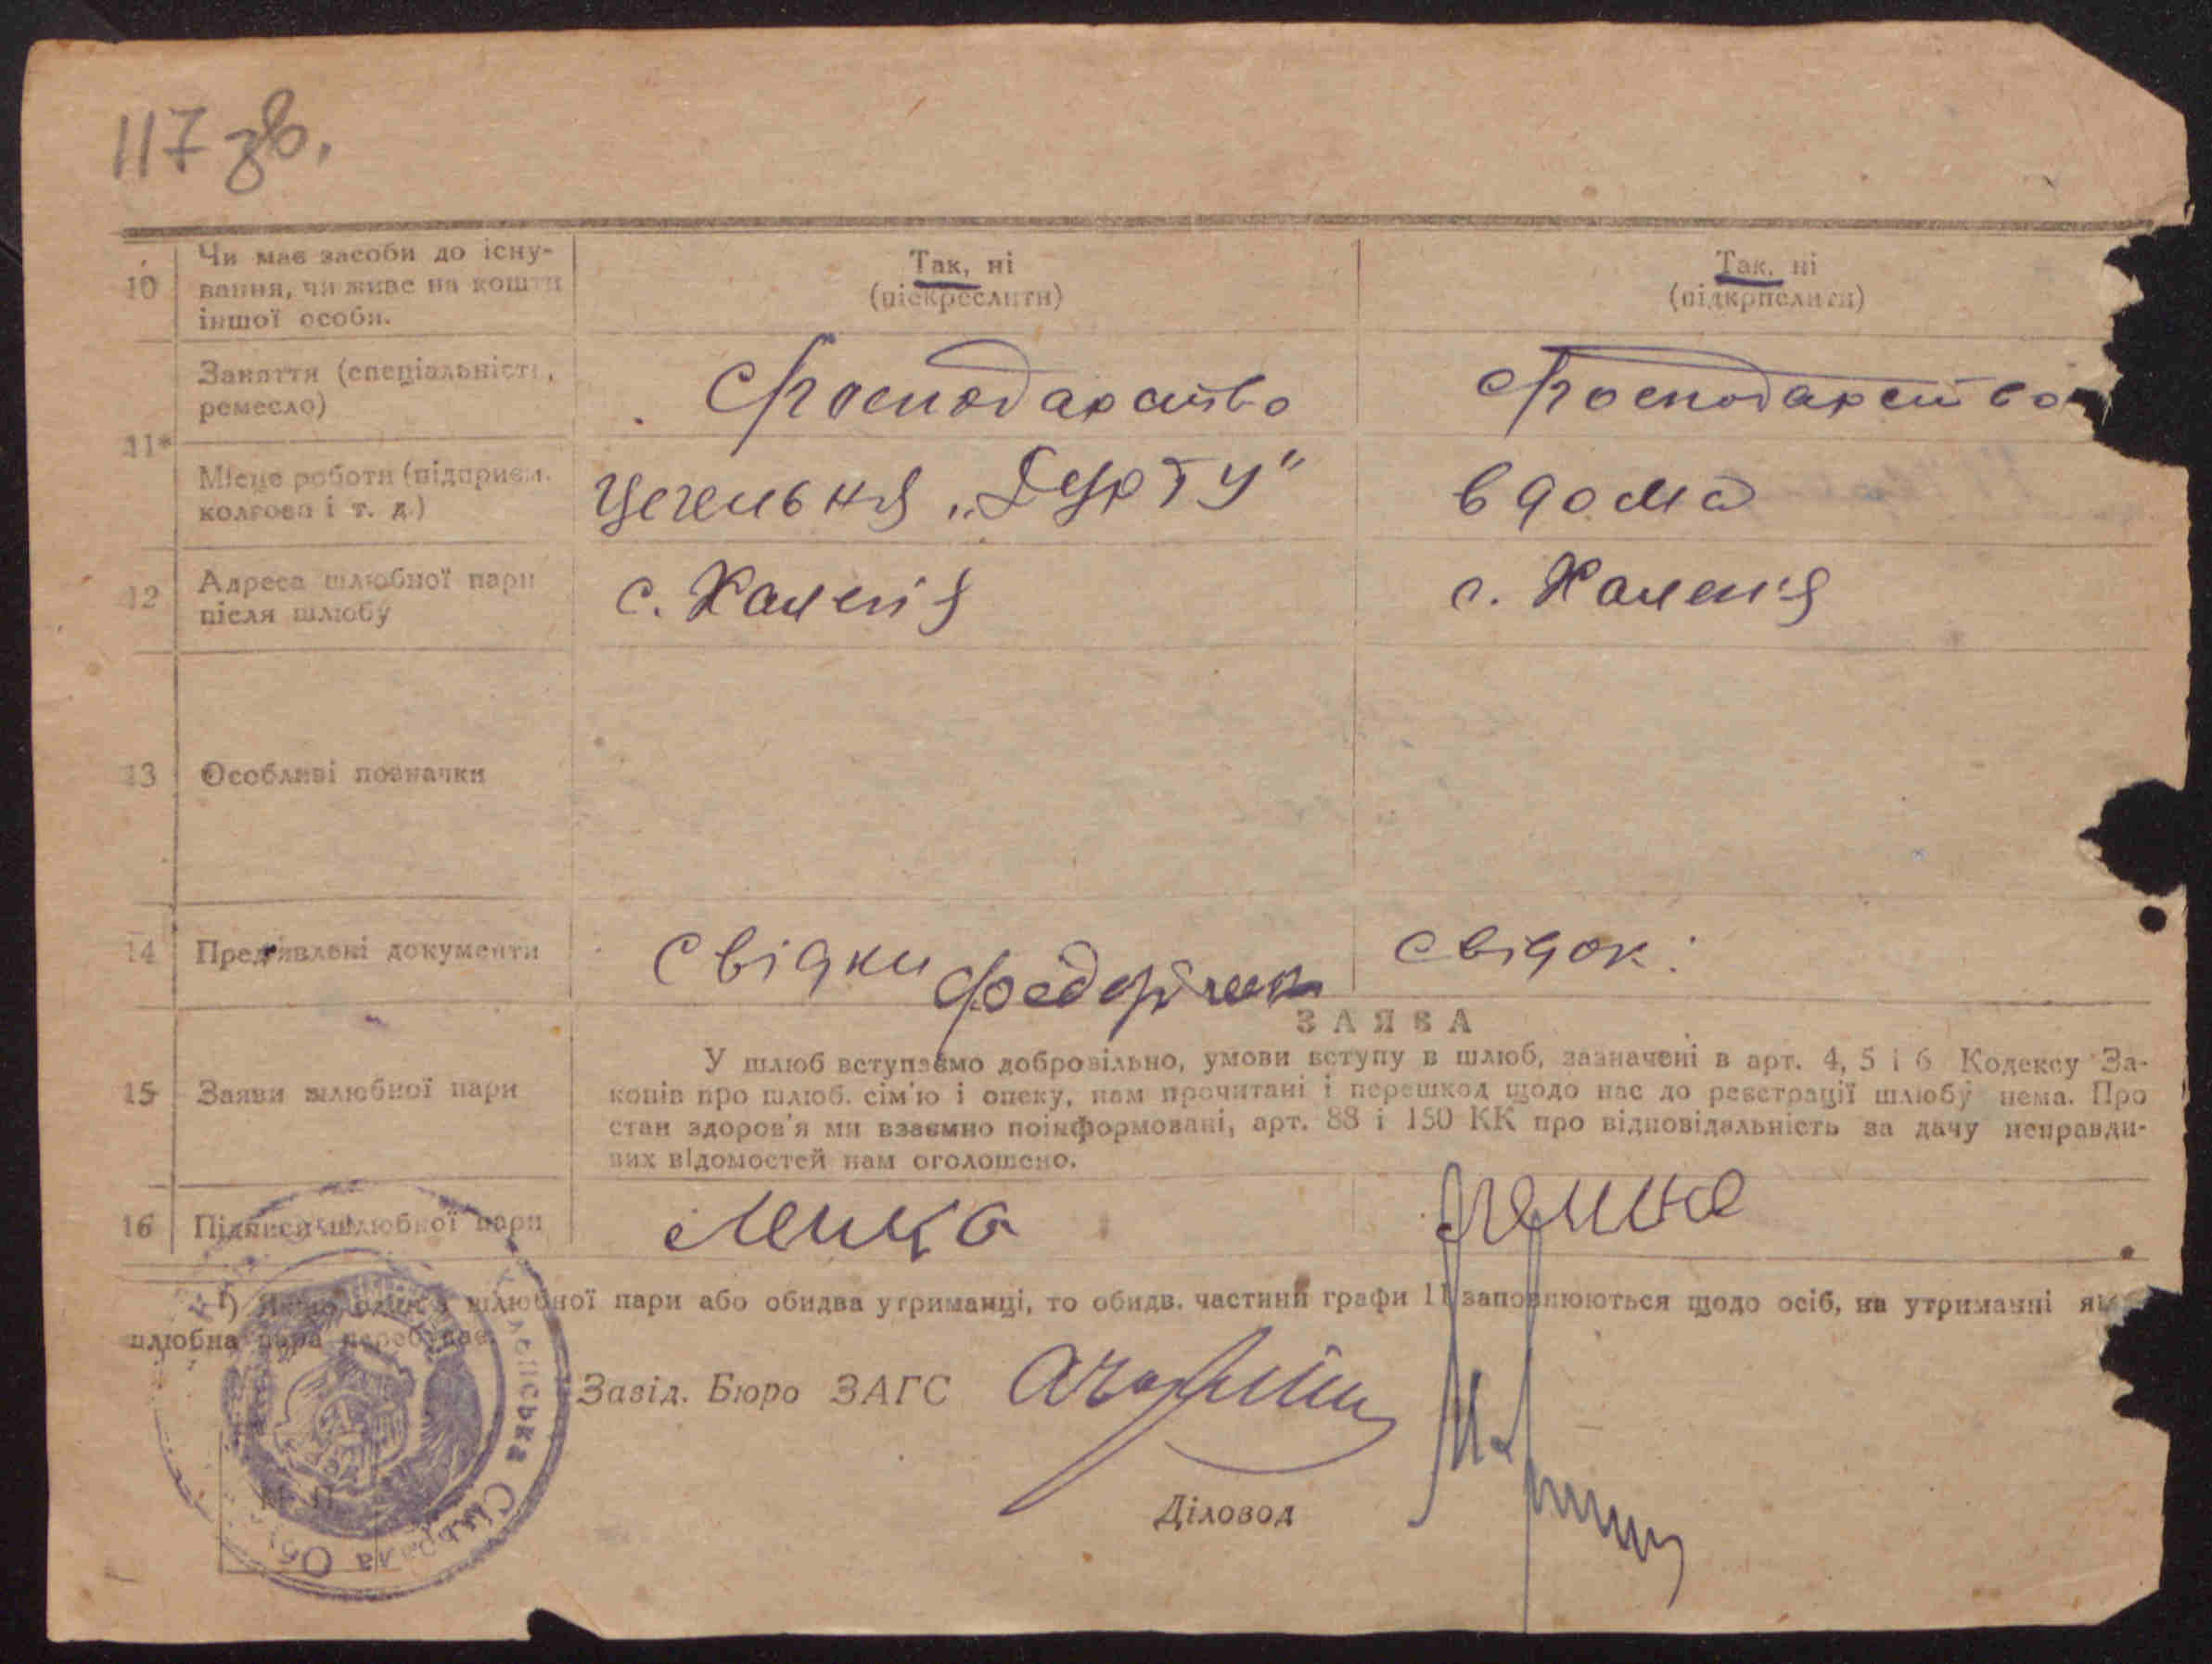 117 зв.
10 Чи має засоби до існу-
вання, чи живе на кошти
іншої особи.
Так, ні
(піскреслити)
Так, ні
(підкрпслити)
11* Заняття (спеціальність,
ремесло)
Господарство
Господарство
Місце роботи (підприєм.
колгосп і т. д.)
Цегельня
вдома
12 Адреса шлюбної пари
після шлюбу
с. Халепія
с. Халепія
13 Особливі позначки
14 Пред'явлені документи
Свідки
Свідок:
15 Заяви шлюбної пари
ЗАЯВА
У шлюб вступаємо добровільно, умови вступу в шлюб, зазначені в арт. 4, 5 і 6 Кодексу За-
конів про шлюб. сім'ю і опеку, нам прочитані і перешкод щодо нас до реєстрації шлюбу нема. Про
стан здоров'я ми взаємно поінформовані, арт. 88 і 150 КК про відповідальність за дачу неправди-
вих відомостей нам оголошено.
16 Підписи шлюбної пари
*) Якщо один з шлюбної пари або обидва утриманці, то обидв. частини графи 11 заповнюються щодо осіб, на утриманні як
шлюбна пара перебуває.
Завід. Бюро ЗАГС
М. П.
Діловод